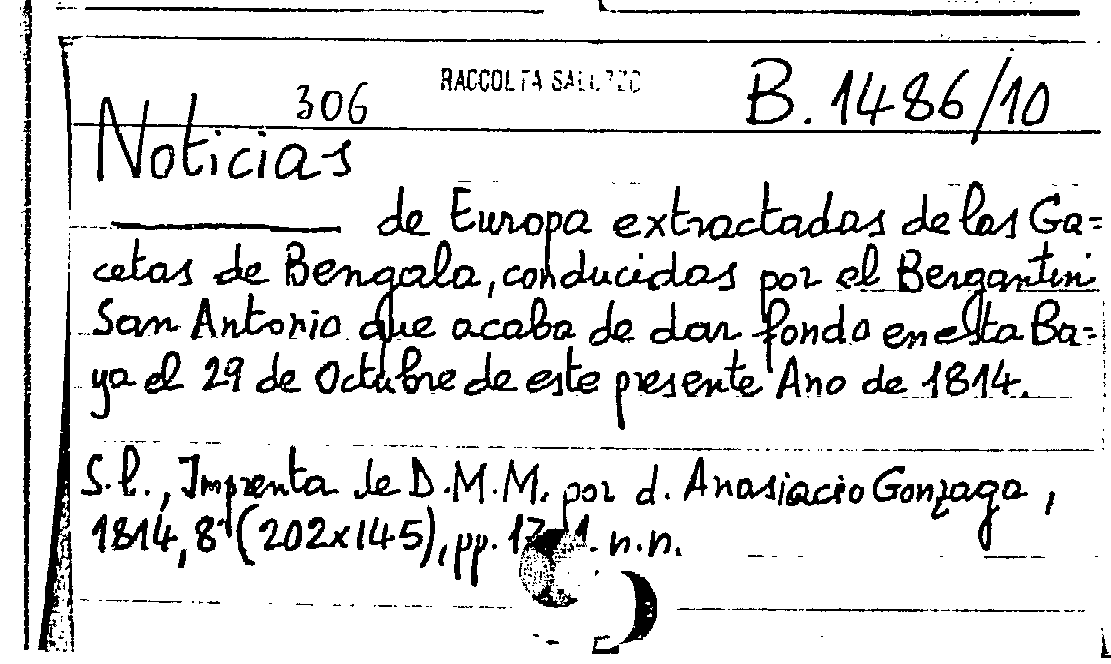 306 RACCOLTA B. 1486/10
Noticias
de Europa extractadas de las Ga=
cetas de Bengala, conducidas por el Bergantin
San Antonio que acaba de dar fondo en esta Ba=
ya el 29 de Octubre de este presente Ano de 1814.
S.l., Imprenta de D.M.M. por d. Anasiacio Gonzaga,
1814, 8° (202x145), pp. n.n.